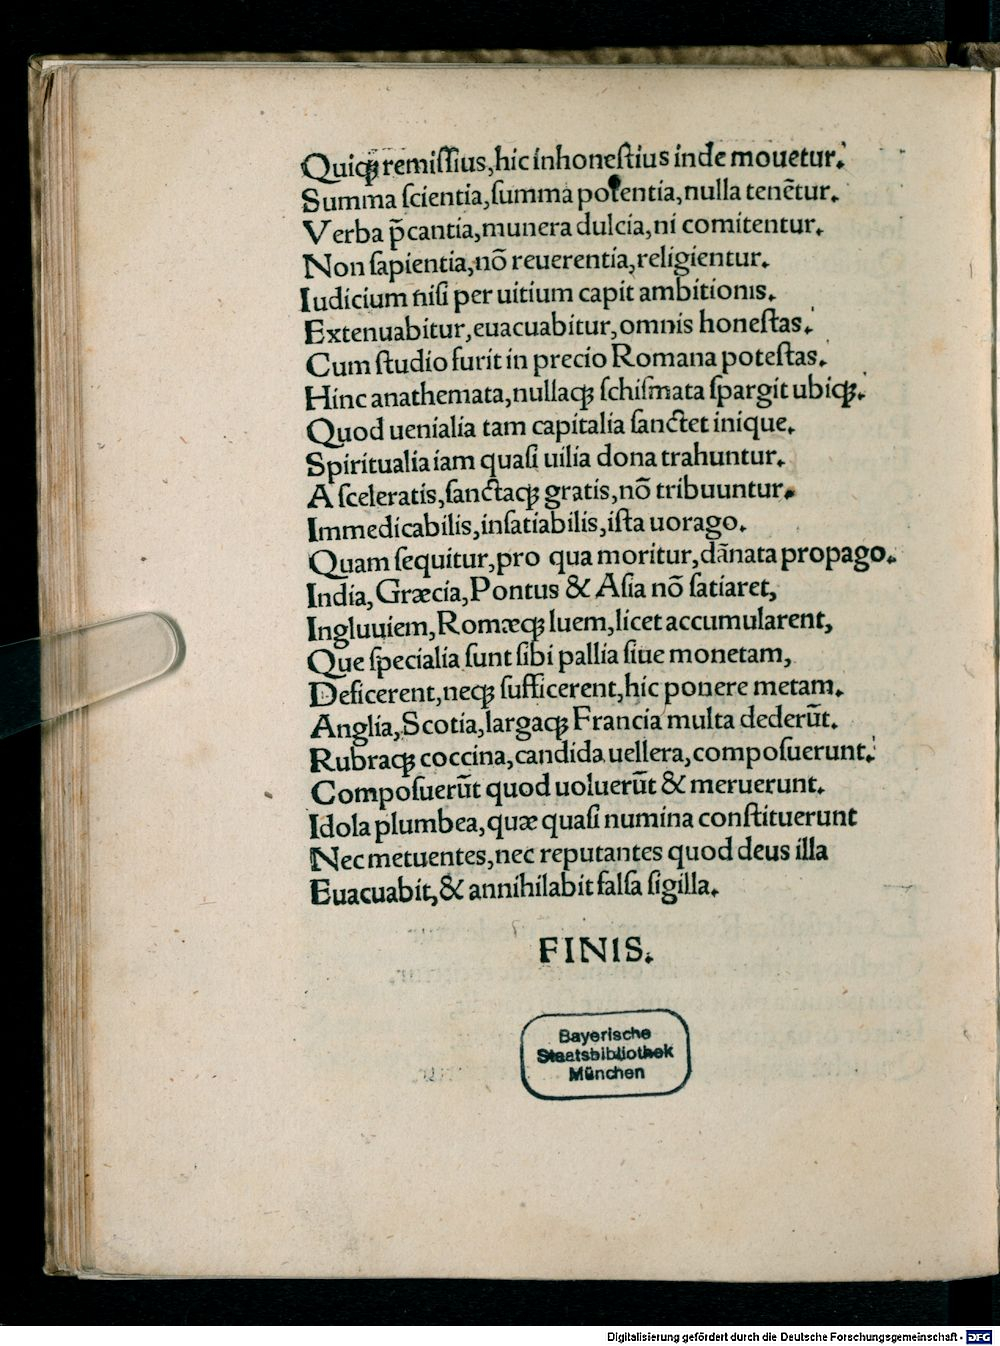 Quiqꝫ remiſſius, hic inhoneſtius inde mouetur.
Summa ſcientia, ſumma potentia, nulla tenẽtur.
Verba p̃cantia, munera dulcia, ni comitentur.
Non ſapientia, nõ reuerentia, religientur.
Iudicium niſi per uitium capit ambitionis.
Extenuabitur, euacuabitur, omnis honeſtas.
Cum ſtudio furit in precio Romana poteſtas.
Hinc anathemata, nullaqꝫ ſchiſmata ſpargit ubiqꝫ.
Quod uenialia tam capitalia ſanctet inique.
Spiritualia iam quaſi uilia dona trahuntur.
A ſceleratis, ſanctaqꝫ gratis, nõ tribuuntur.
Immedicabilis, inſatiabilis, iſta uorago.
Quam ſequitur, pro qua moritur, dãnata propago.
India, Græcia, Pontus & Aſia nõ ſatiaret,
Ingluuiem, Romæqꝫ luem, licet accumularent,
Que ſpecialia ſunt ſibi pallia ſiue monetam,
Deficerent, neqꝫ ſufficerent, hic ponere metam.
Anglia, Scotia, largaqꝫ Francia multa dederũt.
Rubraqꝫ coccina, candida uellera, compoſuerunt.
Compoſuerũt quod uoluerũt & meruerunt.
Idola plumbea, quæ quaſi numina conſtituerunt
Nec metuentes, nec reputantes quod deus illa
Euacuabit, & annihilabit falſa ſigilla.
FINIS.
Bayerische
Staatsbibliothek
München
Digitalisierung gefördert durch die Deutsche Forschungsgemeinschaft - DFG